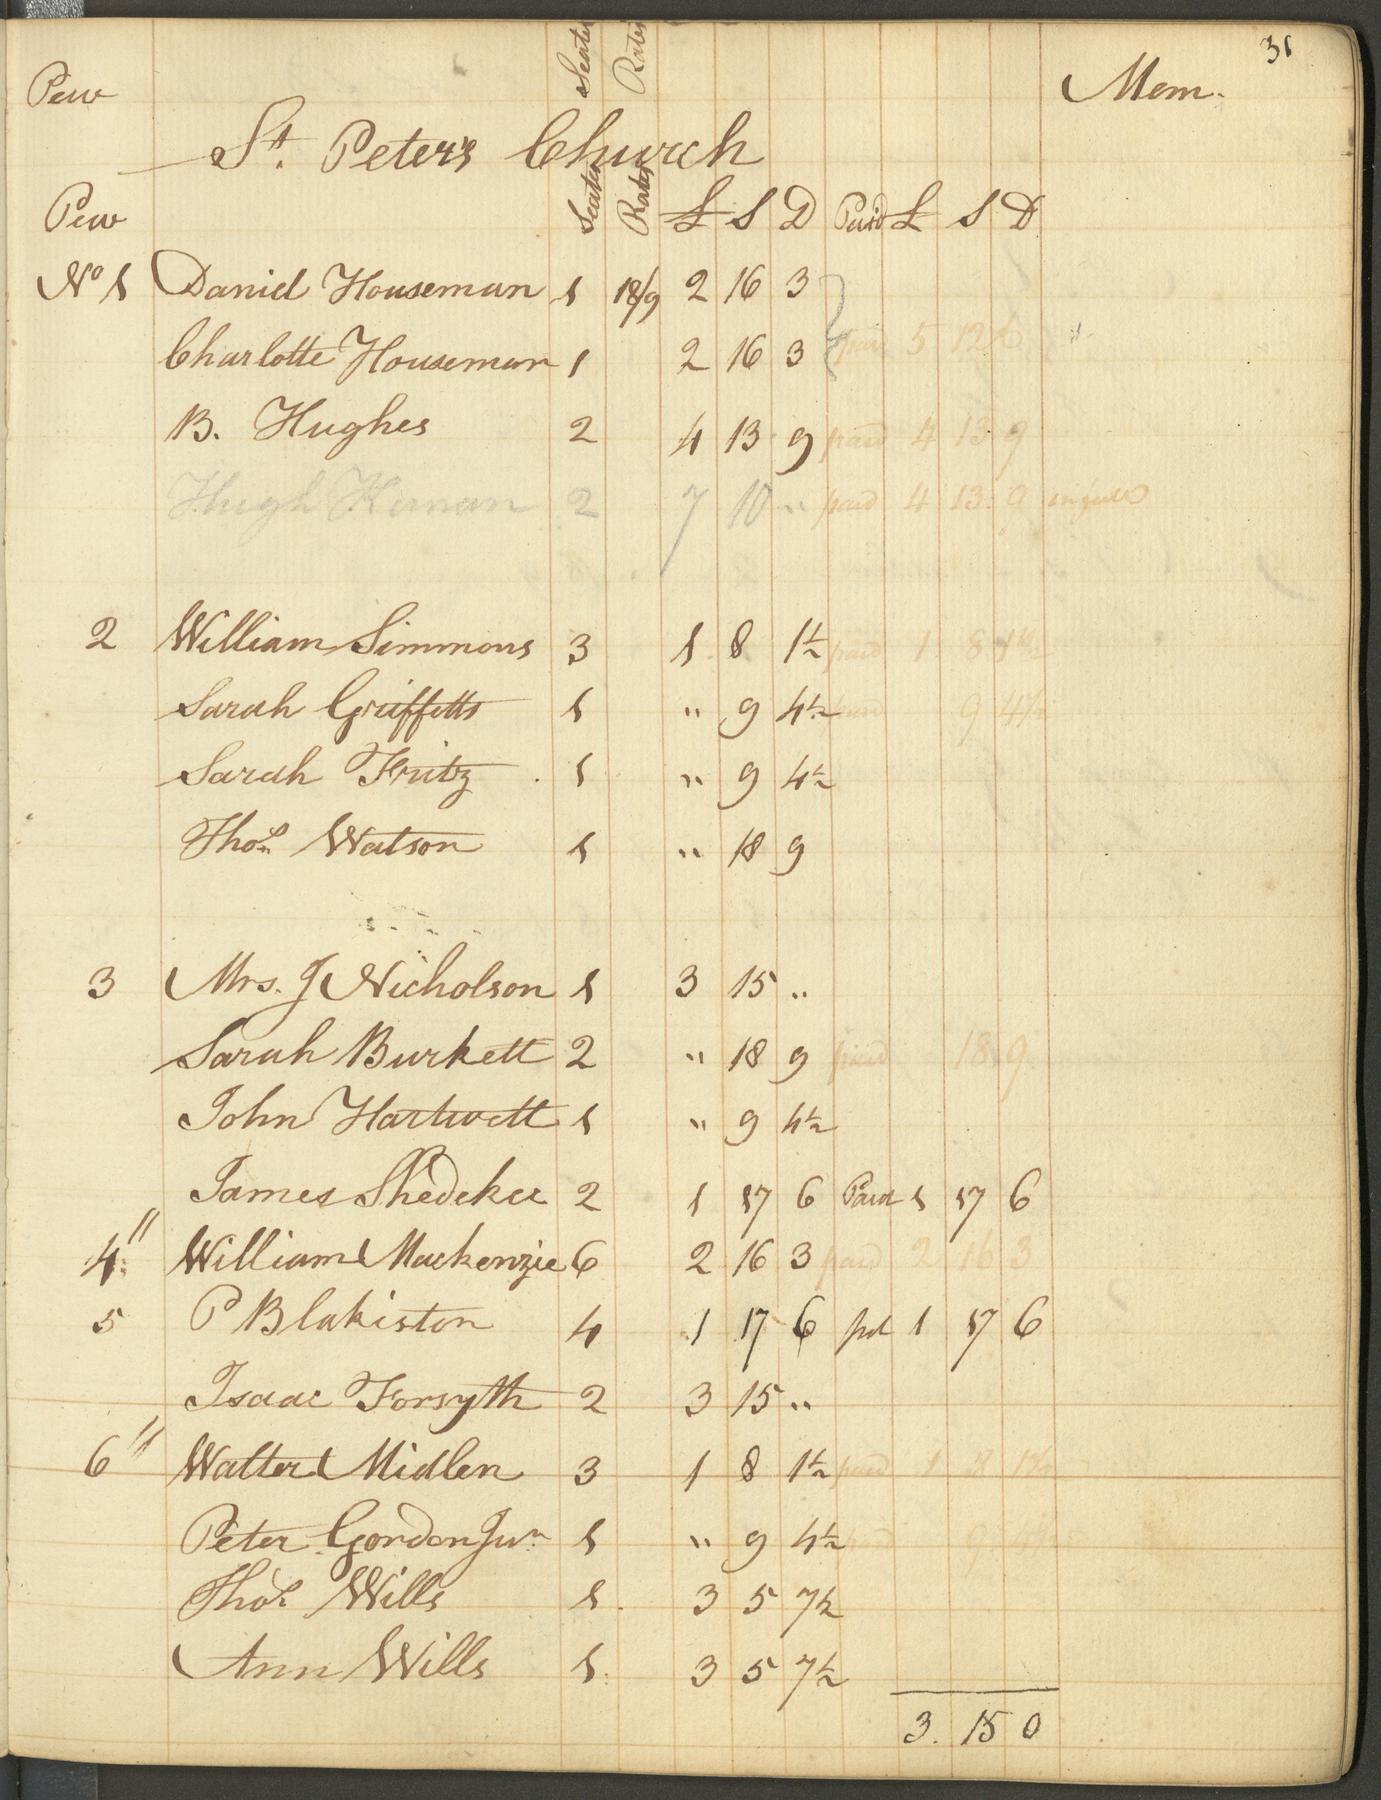 31
Pew Seats Rates Mem.
St. Peters Church
Pew Seats Rates £ S D Paid £ S D
No 1 Daniel Houseman 1 18/9 2 16 3
Charlotte Houseman 1 2 16 3 paid 5 12 6
B. Hughes 2 4 13 9 paid 4 13 9
Hugh 2 7 10 " paid 4 13 9 in full
2 William Simmons 3 1 8 1½ paid 1 8 1½
Sarah Griffetts 1 " 9 4½ paid 9 4½
Sarah Fritz 1 " 9 4½
Thos. Watson 1 " 18 9
3 Mrs. J Nicholson 1 3 15 "
Sarah Burkett 2 " 18 9 paid 18 9
John Hartwett 1 " 9 4½
James Shedeker 2 1 17 6 Paid 1 17 6
4" William Mackenzie 6 2 16 3 paid 2 16 3
5 P Blakiston 4 1 17 6 pd 1 17 6
Isaac Forsyth 2 3 15 "
6" Walter Midlen 3 1 8 1½ paid 1 8 1½
Peter Gordon Jun 1 " 9 4½
Thos. Wills 1 3 5 7½
Ann Wills 1 3 5 7½
3. 15 0